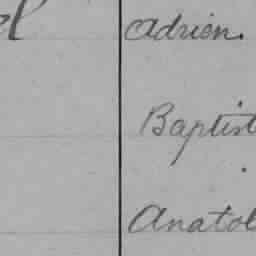 el Adrien.
Baptist
Anatol